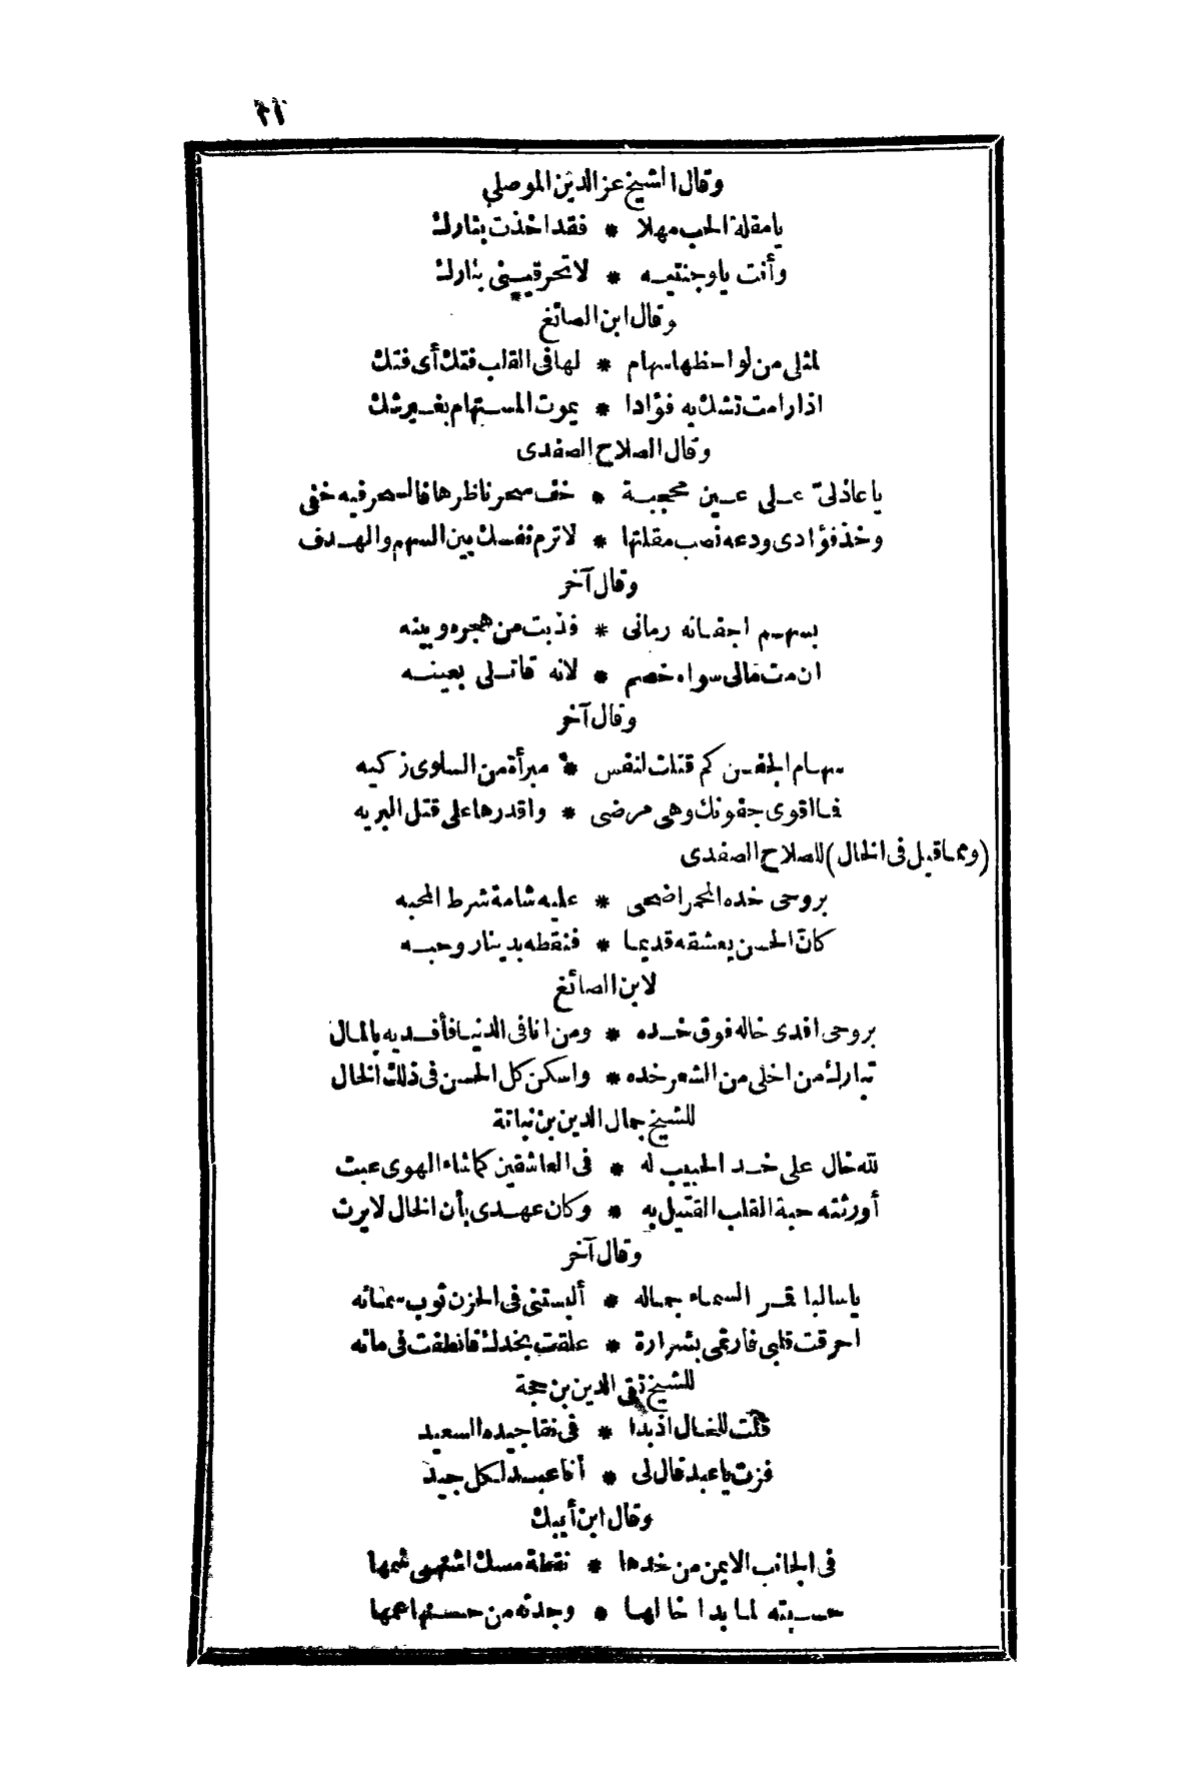 ٢١
وقال الشيخ عز الدين الموصلي
يا مقلة الحب مهلا * فقد اخذت بثارك
وأنت يا وجنتيه * لا تحرقيني بنارك
وقال ابن الصائغ
لمثلى من لواحظها سهام * لها فى القلب فتك أى فتك
اذا رامت تشك به فؤادا * يموت المستهام بغير شك
وقال الصلاح الصفدى
يا عاذلىّ على عين محجبة * خف سحر ناظرها فالسحر فيه خفى
وخذ فؤادى ودعه نصب مقلتها * لا ترم نفسك بين السهم والهدف
وقال آخر
بسهم اجفانه رمانى * فذبت من هجره وبينه
ان مت مالى سواه خصم * لانه قاتلى بعينه
وقال آخر
سهام الجفن كم قتلت لنفس * مبرأة من السلوى زكيه
فما اقوى جفونك وهى مرضى * واقدرها على قتل البريه
(ومما قيل فى الخال) للصلاح الصفدى
بروحى خده المحمر اضحى * عليه شامة شرط المحبه
كانّ الحسن يعشقه قديما * فنقطه بدينار وحبه
لابن الصائغ
بروحى افدى خاله فوق خده * ومن انا فى الدنيا فأفديه بالمال
تبارك من اخلى من الشعر خده * واسكن كل الحسن فى ذلك الخال
للشيخ جمال الدين بن نباتة
لله خال على خد الحبيب له * فى العاشقين كما شاء الهوى عبث
أورثته حبة القلب القتيل به * وكان عهدى بأن الخال لا يرث
وقال آخر
يا سالبا قمر السماء جماله * ألبستنى فى الحزن ثوب سمائه
احرقت قلبى فارتمى بشرارة * علقت بخدك فانطفت فى مائه
للشيخ تقى الدين بن حجة
قلت للخال اذ بدا * فى نقا جيده السعيد
فزت يا عبد قال لى * أنا عبد لكل جيد
وقال ابن أيبك
فى الجانب الايمن من خدها * نقطة مسك اشتهى شمها
حسبته لما بدا خالها * وجدته من حسنها عمها